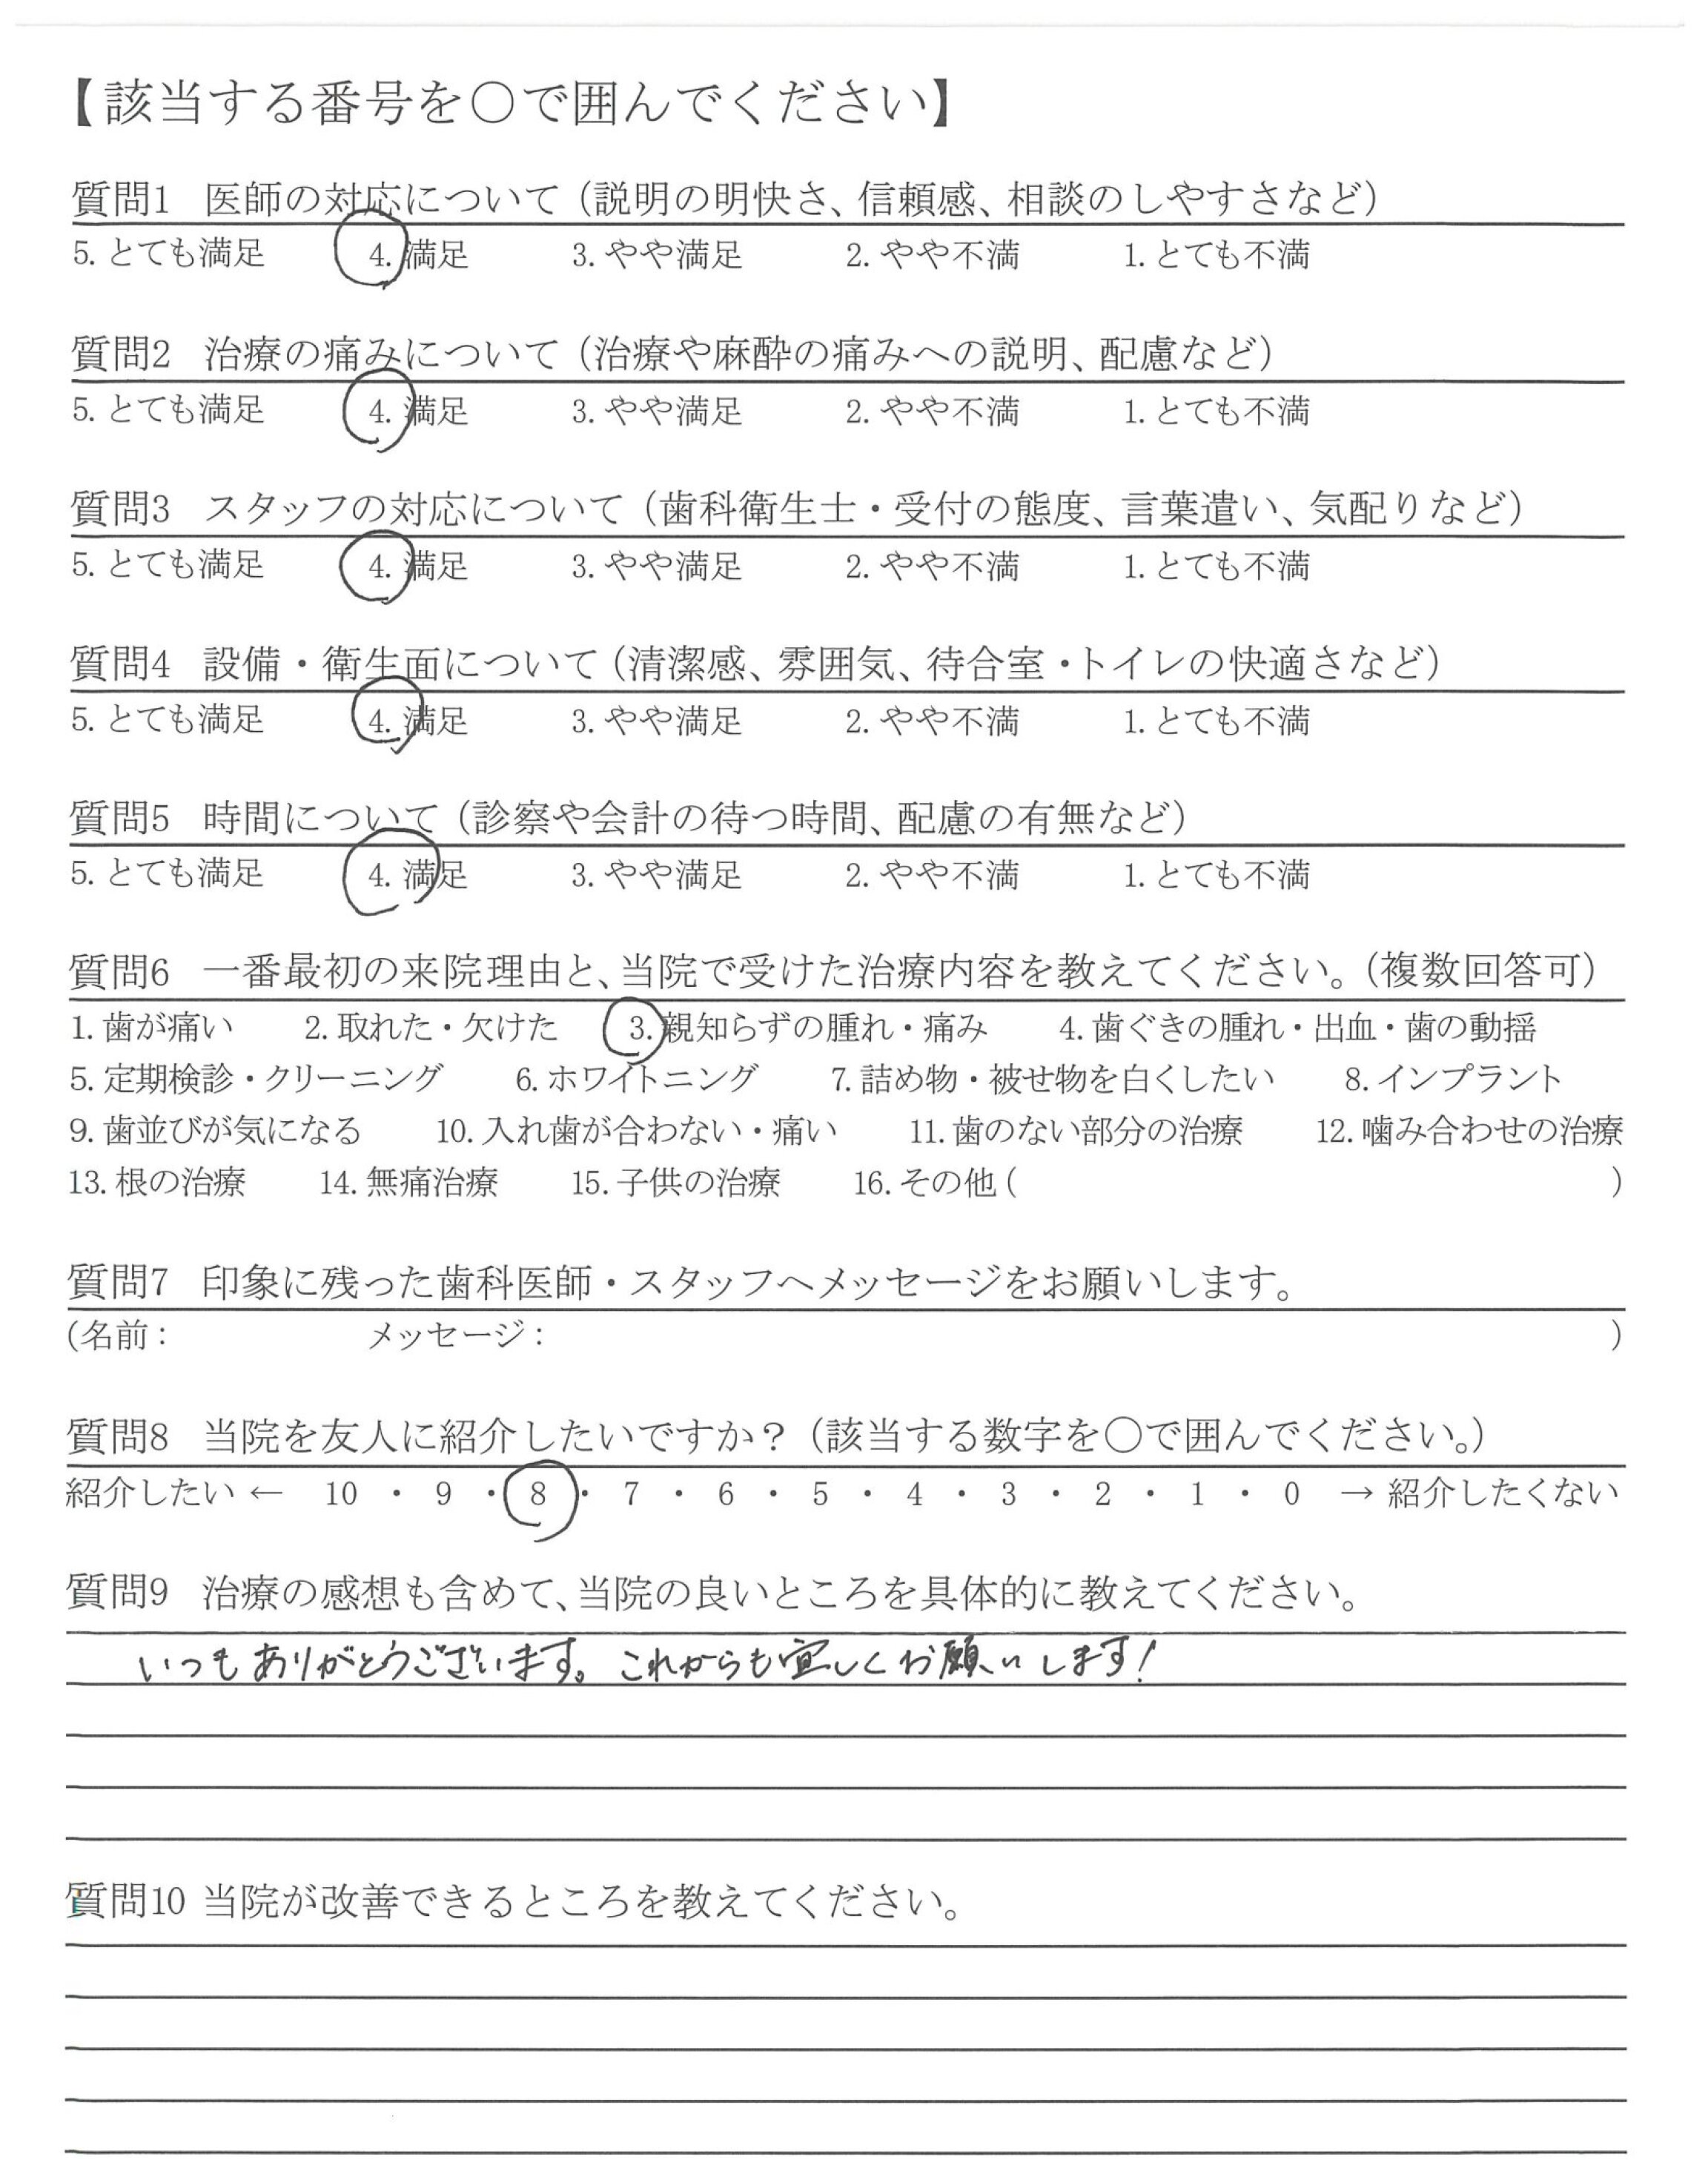 【該当する番号を〇で囲んでください】
質問1 医師の対応について（説明の明快さ、信頼感、相談のしやすさなど）
5. とても満足 4. 満足 3. やや満足 2. やや不満 1. とても不満
質問2 治療の痛みについて（治療や麻酔の痛みへの説明、配慮など）
5. とても満足 4. 満足 3. やや満足 2. やや不満 1. とても不満
質問3 スタッフの対応について（歯科衛生士・受付の態度、言葉遣い、気配りなど）
5. とても満足 4. 満足 3. やや満足 2. やや不満 1. とても不満
質問4 設備・衛生面について（清潔感、雰囲気、待合室・トイレの快適さなど）
5. とても満足 4. 満足 3. やや満足 2. やや不満 1. とても不満
質問5 時間について（診察や会計の待つ時間、配慮の有無など）
5. とても満足 4. 満足 3. やや満足 2. やや不満 1. とても不満
質問6 一番最初の来院理由と、当院で受けた治療内容を教えてください。（複数回答可）
1. 歯が痛い 2. 取れた・欠けた 3. 親知らずの腫れ・痛み 4. 歯ぐきの腫れ・出血・歯の動揺
5. 定期検診・クリーニング 6. ホワイトニング 7. 詰め物・被せ物を白くしたい 8. インプラント
9. 歯並びが気になる 10. 入れ歯が合わない・痛い 11. 歯のない部分の治療 12. 噛み合わせの治療
13. 根の治療 14. 無痛治療 15. 子供の治療 16. その他（ ）
質問7 印象に残った歯科医師・スタッフへメッセージをお願いします。
（名前： メッセージ： ）
質問8 当院を友人に紹介したいですか？（該当する数字を〇で囲んでください。）
紹介したい ← 10 ・ 9 ・ 8 ・ 7 ・ 6 ・ 5 ・ 4 ・ 3 ・ 2 ・ 1 ・ 0 → 紹介したくない
質問9 治療の感想も含めて、当院の良いところを具体的に教えてください。
いつもありがとうございます。これからも宜しくお願いします！
質問10 当院が改善できるところを教えてください。